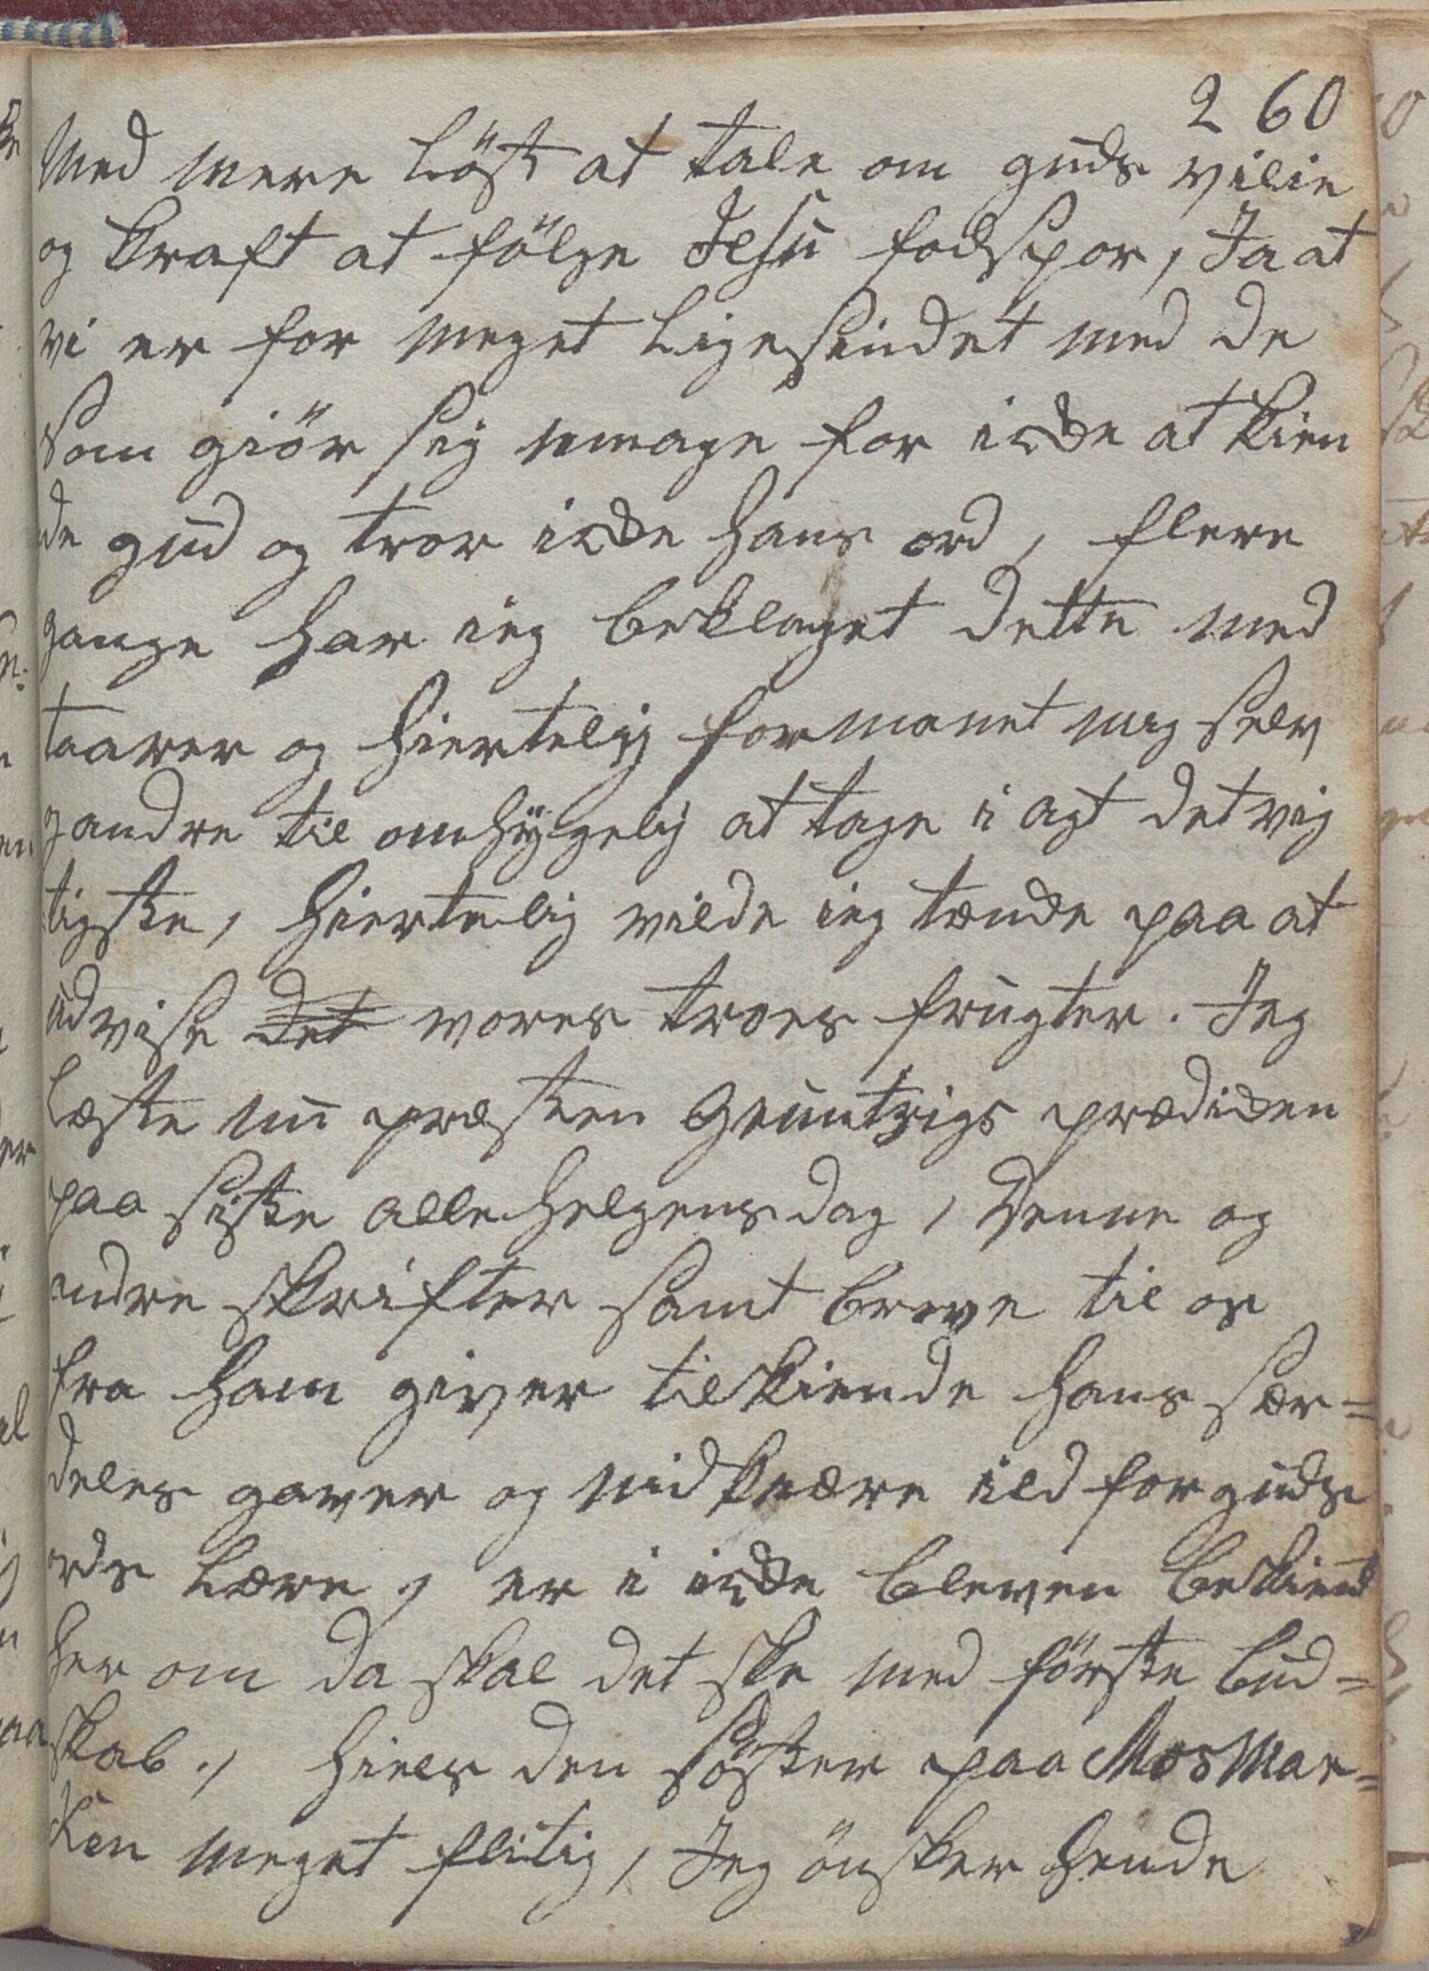 260
Med mere Löst at tale om guds vilie
og kraft at fölge Jesu fodspor, Ja at
vi er for meget Ligesindet med de
som giör sig umage for icke at kien
de gud og tror icke hans ord, flere
gange har ieg beklaget dette med
taarer og hiertelig formanet mig selv
og andre til omhyggelig at tage i agt det vig
tigste, hiertelig vilde ieg tænde paa at
udvise det vores troes frugter. Jeg
Læste nu præsten Gruntvigs prædicken
paa siste alle helgens dag, denne og
andre skrifter samt breve til os
fra ham giver tilkiende hans sær=
deles gaver og nidkiære ild for guds
ords Lære, er i icke bleven bekiend
her om da skal det ske med förste bud=
skab., hiels den söster paa Mosmar=
ken meget flitig, Jeg önsker hende